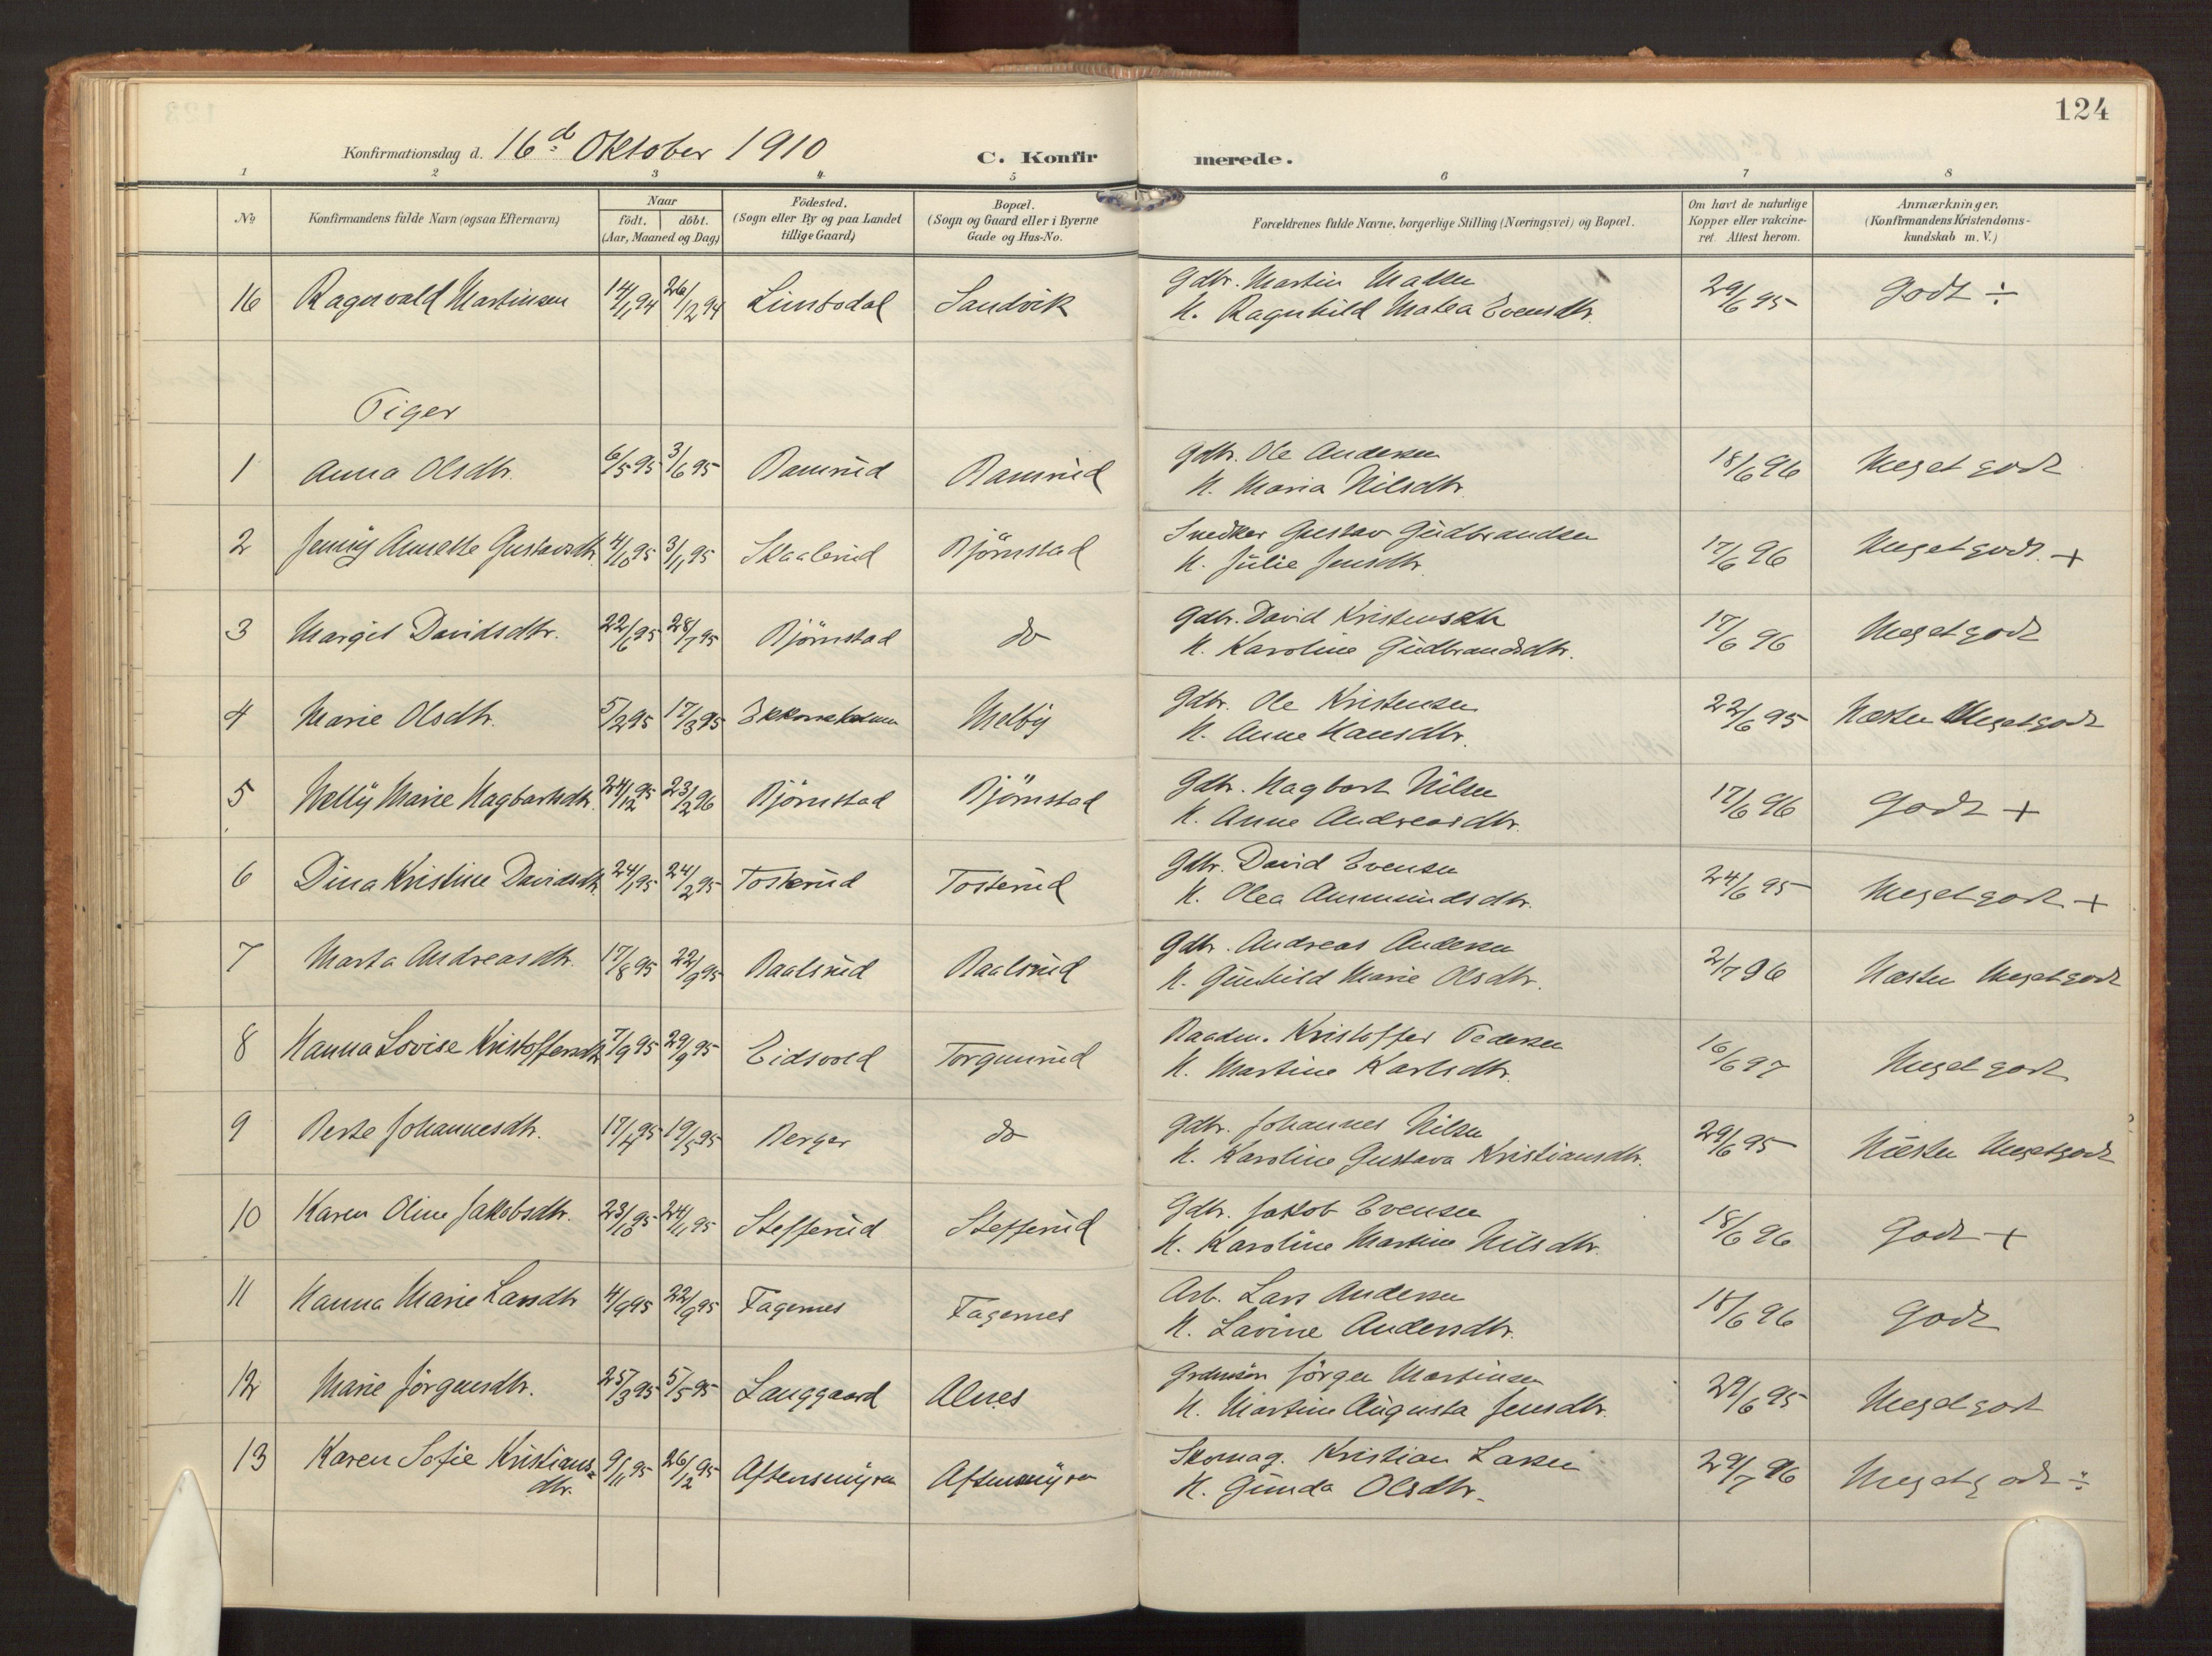 124
Konfirmationsdag d. 16d Oktober 1910 C. Konfirmerede.
1 2 3 4 5 6 7 8
No Konfirmandens fulde Navn (ogsaa Efternavn) Naar födt. döbt. (Aar, Maaned og Dag) Födested. (Sogn eller By og paa Landet tillige Gaard) Bopæl. (Sogn og Gaard eller i Byerne Gade og Hus-No. Forældrenes fulde Navne, borgerlige Stilling (Næringsvei) og Bopæl. Om havt de naturlige Kopper eller vakcineret. Attest herom. Anmærkninger, (Konfirmandens Kristendomskundskab m. V.)
16 Ragnvald Martinsen 14/1 94 26/12 94 Sandvik Gdbr. Martin
H. Ragnhild Matea Evensdtr. 29/6 95 Godt ÷
Piger
1 Anna Olsdtr. 6/5 95 3/6 95 Ramsrud Ramsrud Gdbr. Ole Andersen
H. Maria Nilsdtr. 18/6 96 Meget godt
2 Jenny Annette Gustavsdtr. 4/10 95 3/11 95 Skaalerud Björnstad Snedker Gustav Gudbrandsen
H. Julie Jensdtr. 17/6 96 Meget godt. +
3 Margit Davidsdtr. 22/6 95 28/7 95 Björnstad do Gdbr. David
H. Karoline Gudbrandsdtr. 17/6 96 Meget godt
4 Marie Olsdtr. 5/2 95 17/3 95 Melby Gdbr. Ole Kristensen
H. Anne Hansdtr. 22/6 95 Næsten Meget godt
5 Nelly Marie Hagbartsdtr. 24/12 95 23/2 96 Björnstad Björnstad Gdbr. Hagbart Nilsen
H. Anne Andreasdtr. 17/6 96 Godt +
6 Dina Kristine Davidsdtr. 24/1 95 24/2 95 Tosterud Tosterud Gdbr. David Evensen
H. Olea Ammundsdtr. 24/6 95 Meget godt +
7 Marta Andreasdtr. 17/8 95 22/9 95 Raalsrud Raalsrud Gdbr. Andreas Andersen
H. Gunhild Marie Olsdtr. 2/7 96 Næsten Meget godt
8 Hanna Lovise Kristoffersdtr. 7/9 95 29/9 95 Eidsvold Torgunrud Kristoffer Pedersen
H. Martine Karlsdtr. 16/6 97 Meget godt
9 Berte Johannesdtr. 17/4 95 19/5 95 Berger do Gdbr. Johannes Nilsen
H. Karoline Gustava Kristiansdtr. 29/6 95 Næsten Meget godt
10 Karen Oline Jakobsdtr. 23/10 95 24/11 95 Stefferud Stefferud Gdbr. Jakob Evensen
H. Karoline Martine Nilsdtr. 18/6 96 Godt +
11 Hanna Marie Larsdtr 4/9 95 22/9 95 Fagernes Fagernes Arb. Lars Andersen
H. Lavine Andersdtr. 18/6 96 Godt
12 Marie Jörgensdtr. 25/3 95 5/5 95 Langgaard Alnes Jörgen Martinsen
H. Martine Augusta Jensdtr. 29/6 95 Meget godt
13 Karen Sofie Kristians=
dtr. 9/11 95 26/12 95 Aftensmyren Aftensmyren Skomag. Kristian Larsen
H. Gunda Olsdtr. 29/7 96 Meget godt ÷